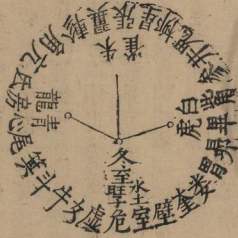 角亢氐房心尾箕斗牛女虛危室壁奎婁胃昴畢觜參井鬼柳星張翼軫
朱雀
青龍
白虎
冬至
水土